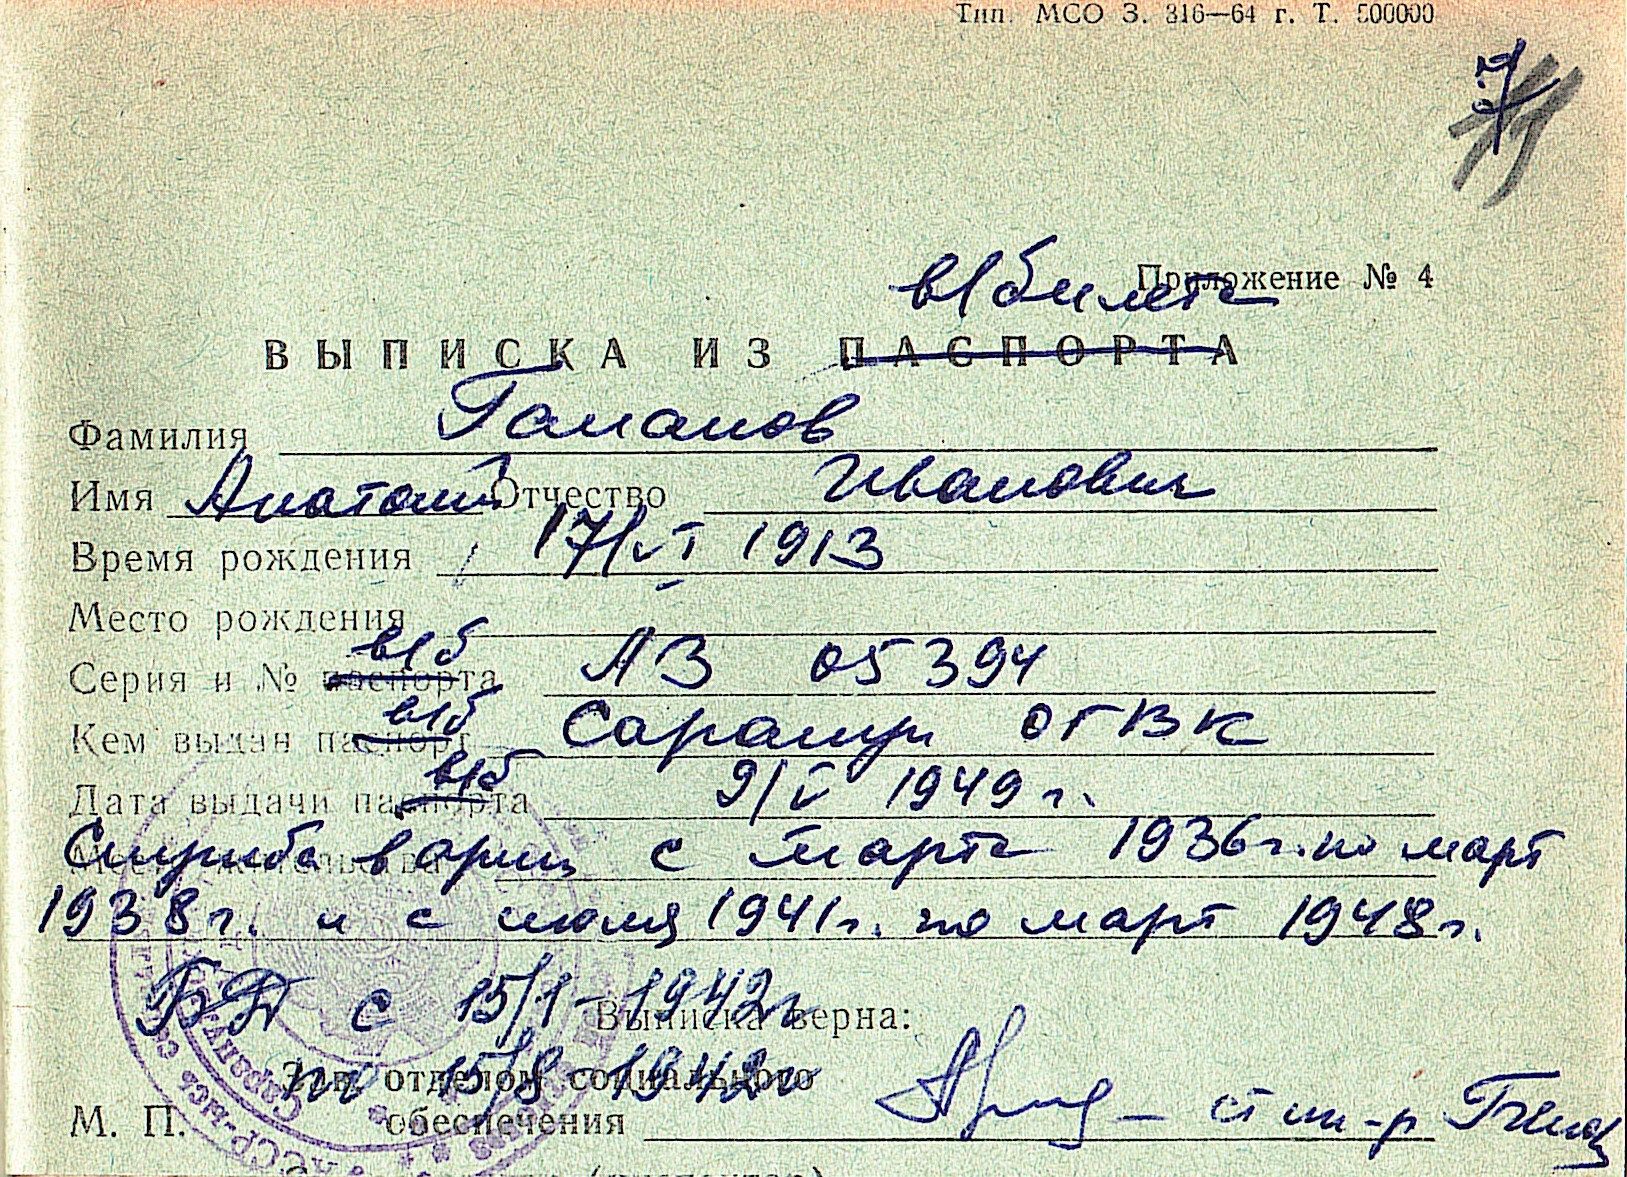 Тип. МСО З. 316—64 г. Т. 500000
7
Приложение № 4
в/билета
ВЫПИСКА ИЗ ПАСПОРТА
Фамилия Гаманов
Имя Анатолий Отчество Иванович
Время рождения 17/VI 1913
Место рождения
Серия и № паспорта в/б АЗ 05394
Кем выдан паспорт в/б Сарапул ОГВК
Дата выдачи паспорта в/б 9/V 1949 г.
Служба в армии с марта 1936 г. по март
1938 г. и с июля 1941 г. по март 1948 г.
БД с 15/1-1942 г
Выписка верна:
по 15/8-1942 г
Зав. отделом социального
М. П. обеспечения
ст ин-р